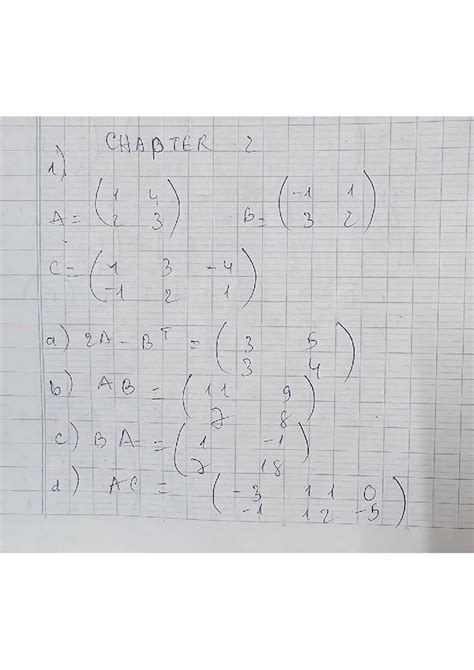 CHAPTER 2
1)
A = ( 1 4 B = ( -1 1
2 3 ) 3 2 )
C = ( 1 3 -4
-1 2 1 )
a) 2A - B^T = ( 3 5
3 4 )
b) AB = ( 11 9
7 8 )
c) BA = ( 1 -1
7 18 )
d) AC = ( -3 11 0
-1 12 -5 )